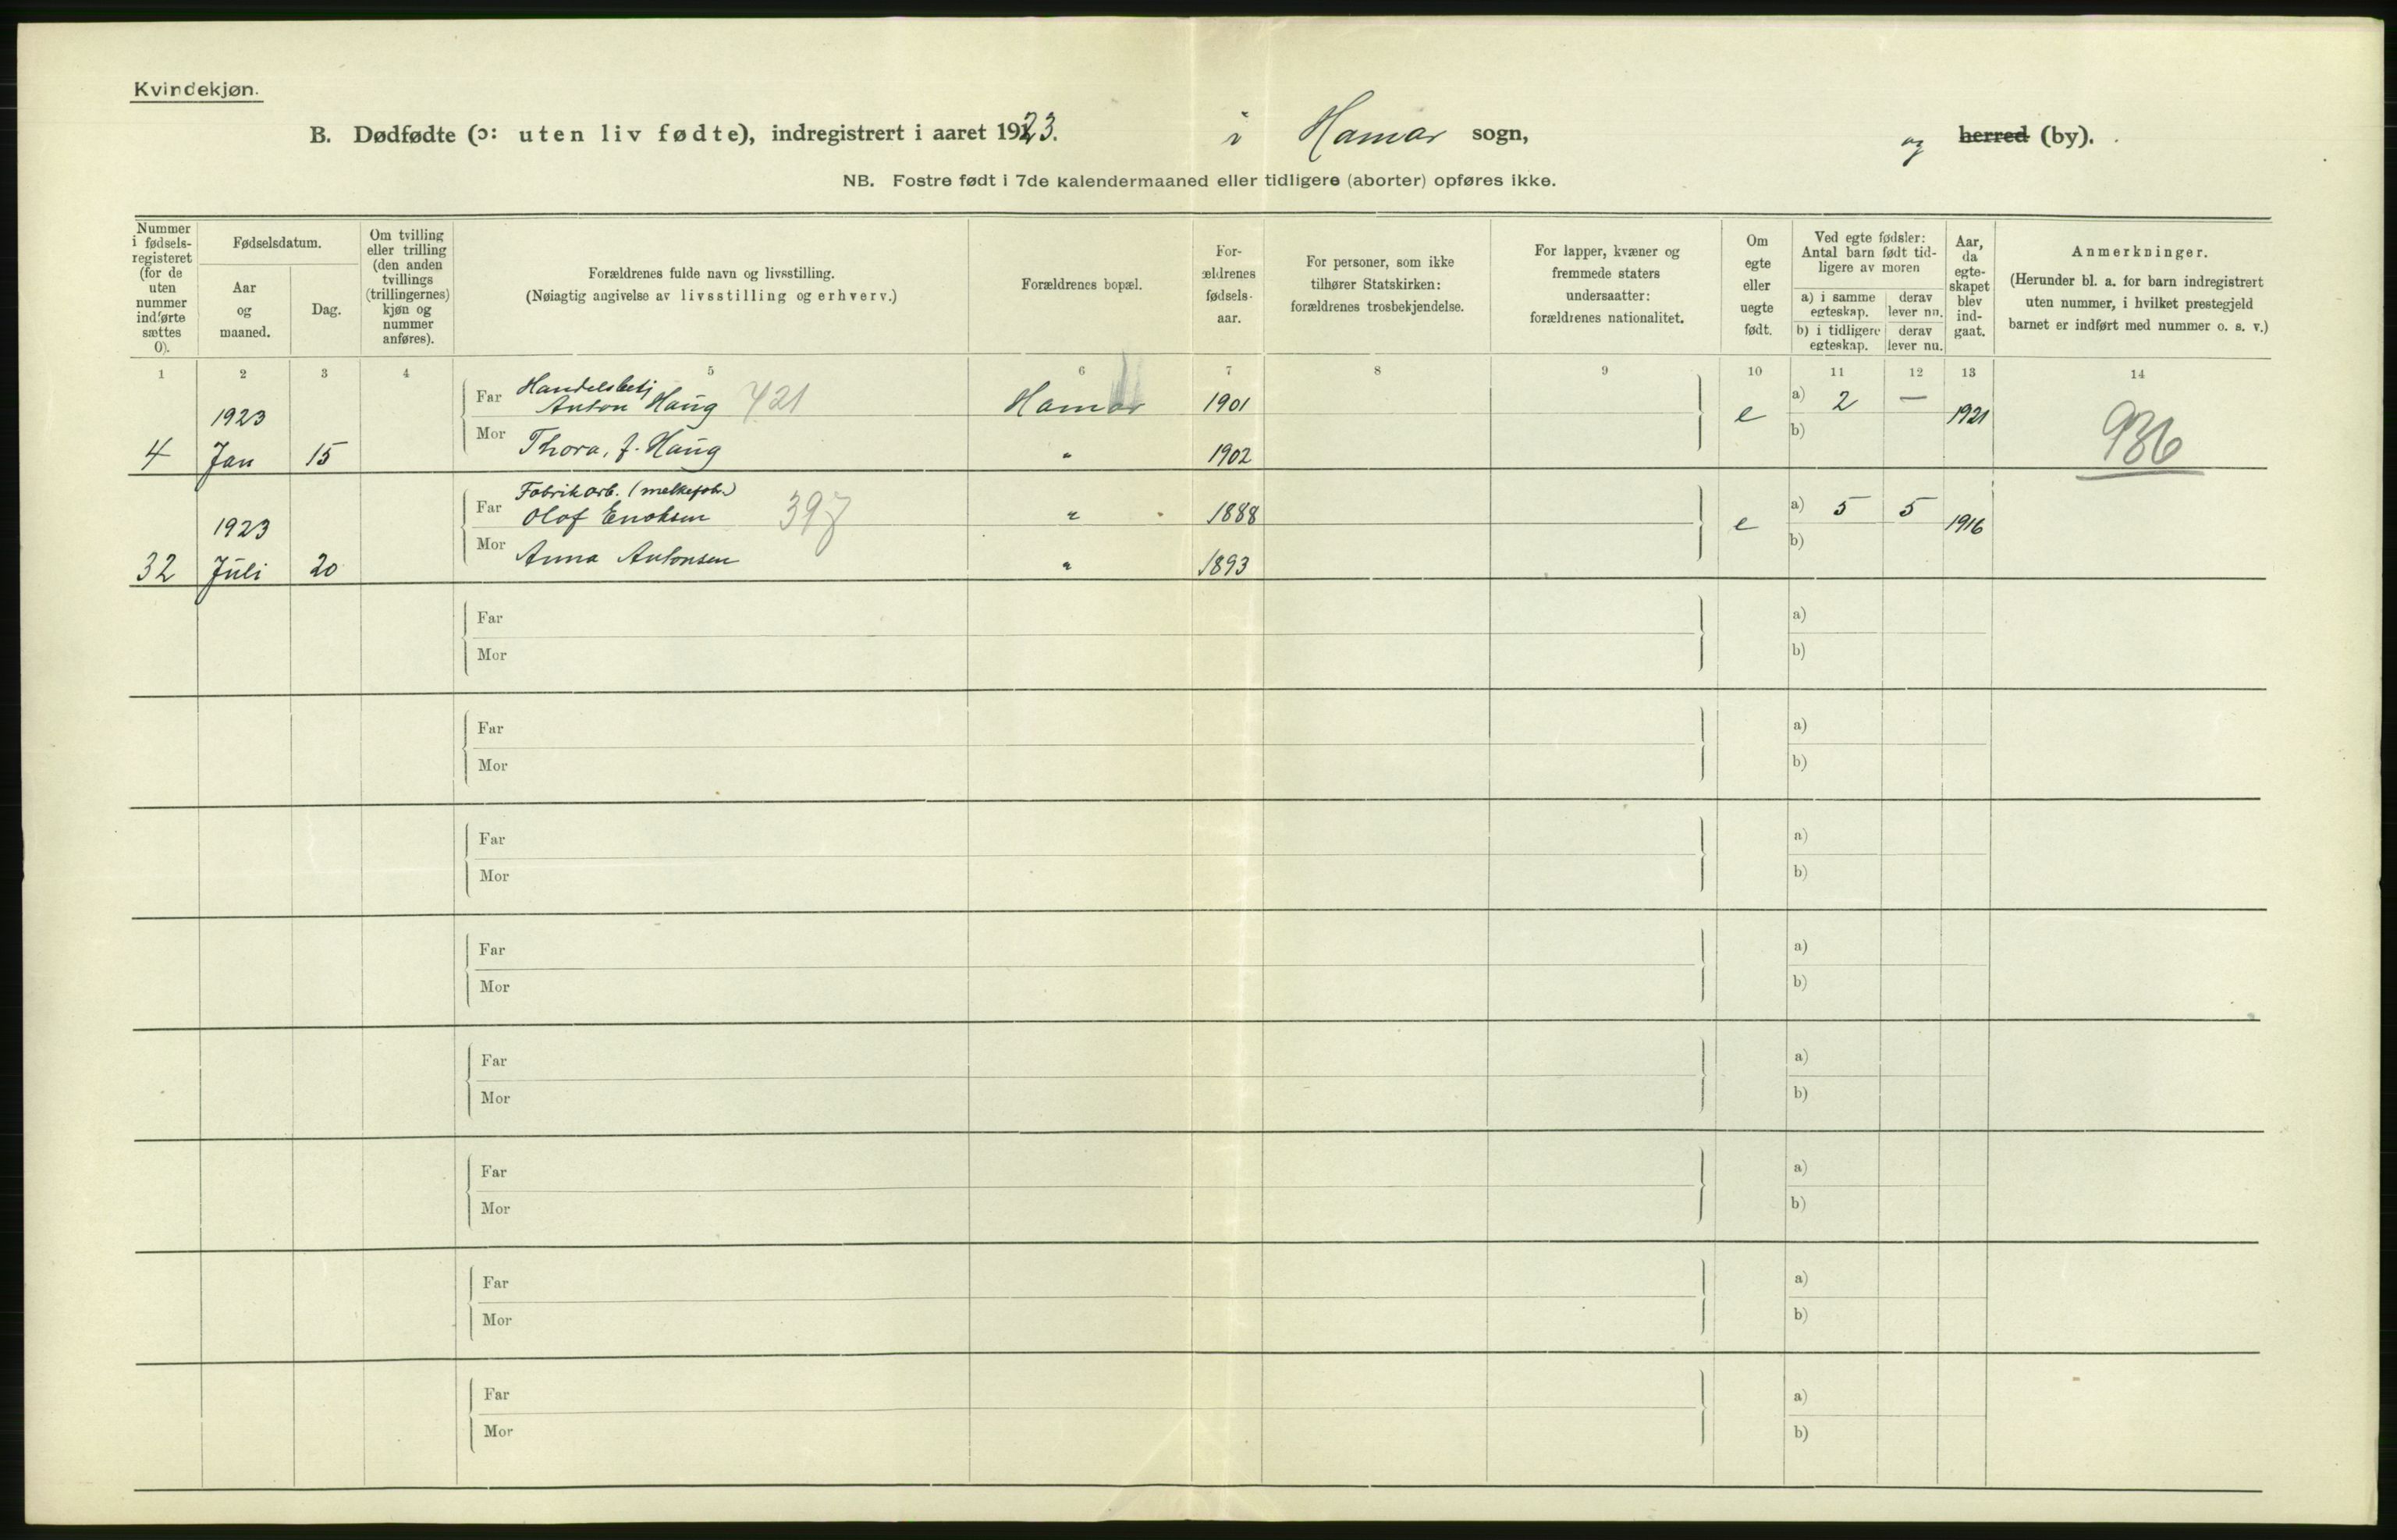 Kvindekjøn.
B. Dødfødte (ɔ: uten liv fødte), indregistrert i aaret 1923. i Hamar sogn, og herred (by).
NB. Fostre født i 7de kalendermaaned eller tidligere (aborter) opføres ikke.
Nummer
i fødsels-
registeret
(for de
uten
nummer
indførte
sættes
0).
Fødselsdatum.
Aar
og
maaned.
Dag.
Om tvilling
eller trilling
(den anden
tvillings
(trillingernes)
kjøn og
nummer
anføres).
Forældrenes fulde navn og livsstilling.
(Nøiagtig angivelse av livsstilling og erhverv.)
Forældrenes bopæl.
For-
ældrenes
fødsels-
aar.
For personer, som ikke
tilhører Statskirken:
forældrenes trosbekjendelse.
For lapper, kvæner og
fremmede staters
undersaatter:
forældrenes nationalitet.
Om
egte
eller
uegte
født.
Ved egte fødsler:
Antal barn født tid-
ligere av moren
a) i samme
egteskap.
derav
lever nu.
b) i tidligere
egteskap.
derav
lever nu.
Aar,
da
egte-
skapet
blev
ind-
gaat.
Anmerkninger.
(Herunder bl. a. for barn indregistrert
uten nummer, i hvilket prestegjeld
barnet er indført med nummer o. s. v.)
1 2 3 4 5 6 7 8 9 10 11 12 13 14
Handelsbetj
Far Anton Haug 421 Hamar 1901 a) 2 —
1923 e 1921 936
Mor b)
4 Jan 15 Thora, f. Haug " 1902
Fabrikarb. (melkefabr.)
Far Olof Enoksen 397 " 1888 a) 5 5
1923 e 1916
Mor b)
32 Juli 20 Anna Antonsen " 1893
Far a)
Mor b)
Far a)
Mor b)
Far a)
Mor b)
Far a)
Mor b)
Far a)
Mor b)
Far a)
Mor b)
Far a)
Mor b)
Far a)
Mor b)